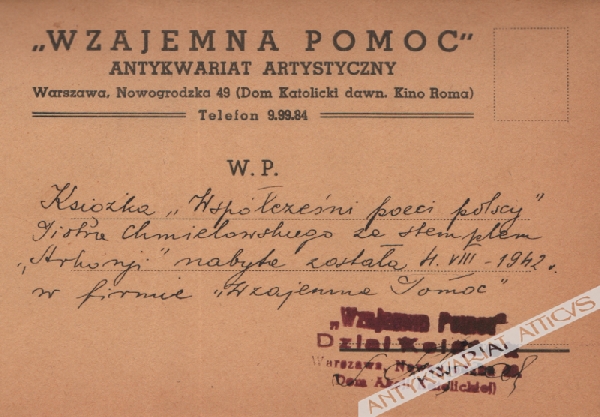 „WZAJEMNA POMOC"
ANTYKWARIAT ARTYSTYCZNY
Warszawa, Nowogrodzka 49 (Dom Katolicki dawn. Kino Roma)
Telefon 9.99.84
W. P.
Książka „Współcześni poeci polscy"
Piotra Chmielowskiego ze stemplem
„Arkonji" nabyta została 4. VIII - 1942 r.
w firmie „Wzajemna Pomoc"
„Wzajemna Pomoc"
Dział
Warszawa,
(Dom
ANTYKWARIAT ATTICVS